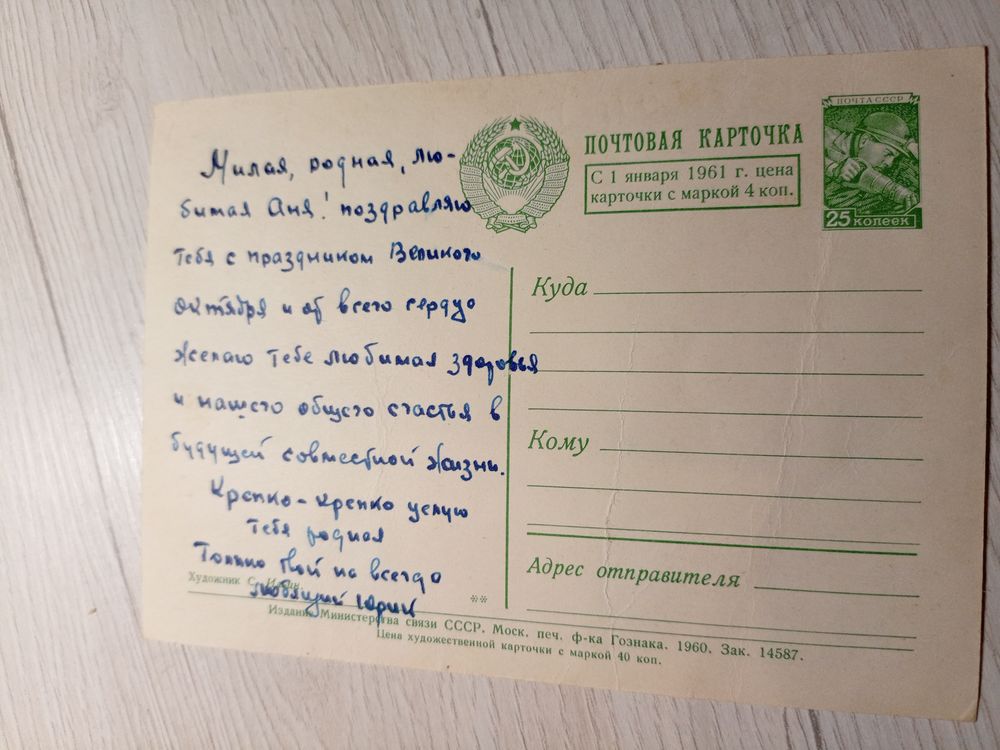 Милая, родная, лю-
бимая Аня! поздравляю
тебя с праздником Великого
октября и от всего сердца
желаю тебе любимая здоровья
и нашего общего счастья в
будущей совместной жизни.
Крепко-крепко целую
тебя родная
Только твой на всегда
любящий Юрий
Художник С.
**
ПОЧТОВАЯ КАРТОЧКА
С 1 января 1961 г. цена
карточки с маркой 4 коп.
ПОЧТА СССР
25 копеек
Куда
Кому
Адрес отправителя
Издание Министерства связи СССР. Моск. печ. ф-ка Гознака. 1960. Зак. 14587.
Цена художественной карточки с маркой 40 коп.